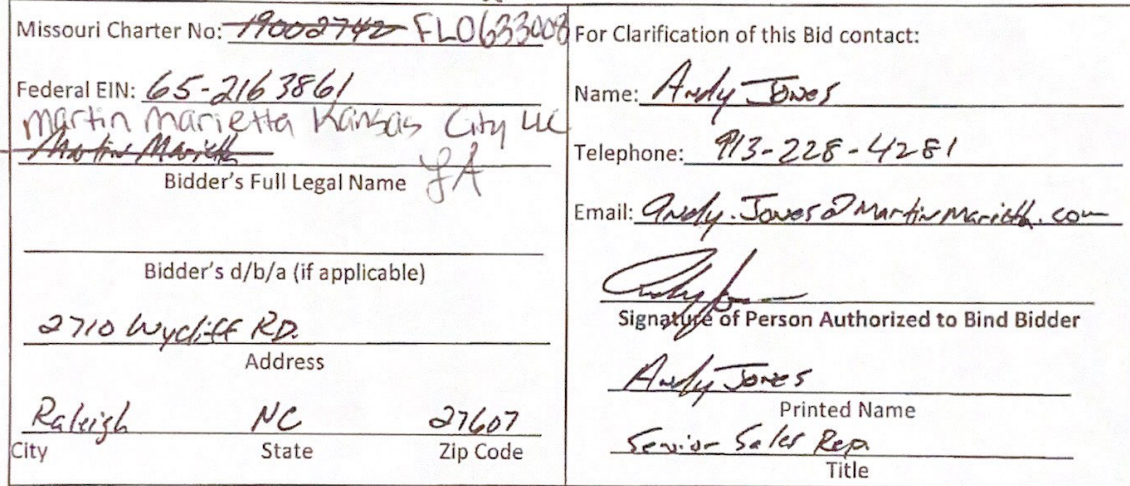 Missouri Charter No: 19002742 FL0633008
Federal EIN: 65-2163861
Martin Marietta Kansas City LLC
Martin Marietta
Bidder's Full Legal Name
Bidder's d/b/a (if applicable)
2710 Wycliff RD.
Address
Raleigh NC 27607
City State Zip Code
For Clarification of this Bid contact:
Name: Andy Jones
Telephone: 913-228-4281
Email: Andy.Jones@Martinmarietta.com
Signature of Person Authorized to Bind Bidder
Andy Jones
Printed Name
Senior Sales Rep.
Title